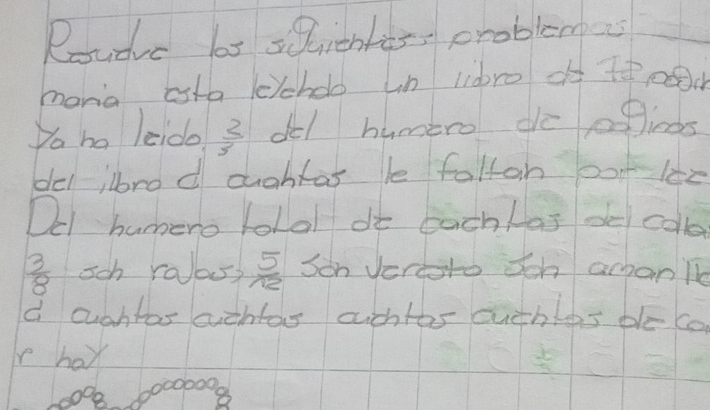 Resudvc los siguientes problemas
maria esta leyehdo un libro de 72 pagi
Ya ha leido 2/3 del humero de paginas
del libro d cuahtas le faltan por lee
Del humero total de cuchtas del colla
3/8 soh rojas, 5/12 soh verdes soh amarill
d cuahtas cuchtas cuchtas cuchtas de co
r hay